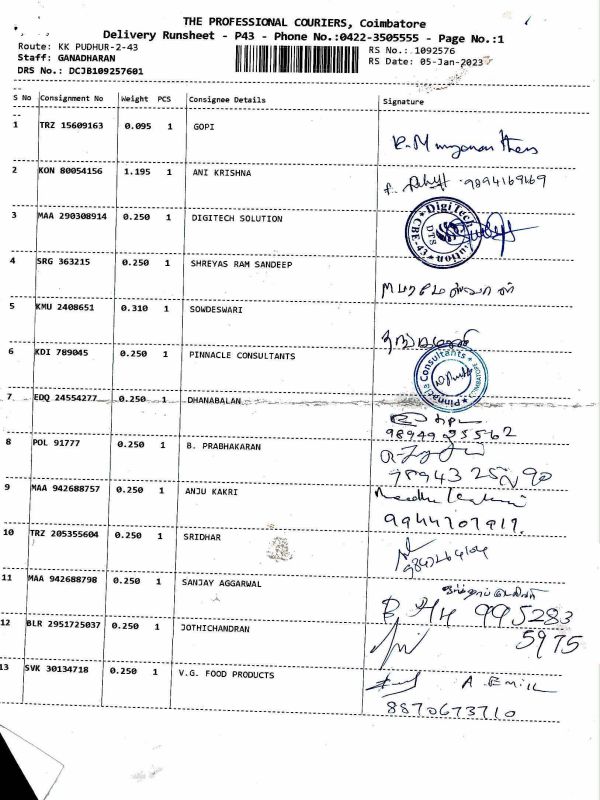 THE PROFESSIONAL COURIERS, Coimbatore
Delivery Runsheet - P43 - Phone No.:0422-3505555 - Page No.:1
Route: KK PUDHUR-2-43 RS No.: 1092576
Staff: GANADHARAN RS Date: 05-Jan-2023
DRS No.: DCJB109257601
S No Consignment No Weight PCS Consignee Details Signature
1 TRZ 15609163 0.095 1 GOPI
2 KON 80054156 1.195 1 ANI KRISHNA 9894169169
3 MAA 290308914 0.250 1 DIGITECH SOLUTION DigiTech Solution CBE-43 DTS
4 SRG 363215 0.250 1 SHREYAS RAM SANDEEP
5 KMU 2408651 0.310 1 SOWDESWARI
6 KDI 789045 0.250 1 PINNACLE CONSULTANTS Pinnacle Consultants
7 EDQ 24554277 0.250 1 DHANABALAN
8 POL 91777 0.250 1 B. PRABHAKARAN
9 MAA 942688757 0.250 1 ANJU KAKRI
10 TRZ 205355604 0.250 1 SRIDHAR
11 MAA 942688798 0.250 1 SANJAY AGGARWAL
995283
5975
12 BLR 2951725037 0.250 1 JOTHICHANDRAN
13 SVK 30134718 0.250 1 V.G. FOOD PRODUCTS
8870673710